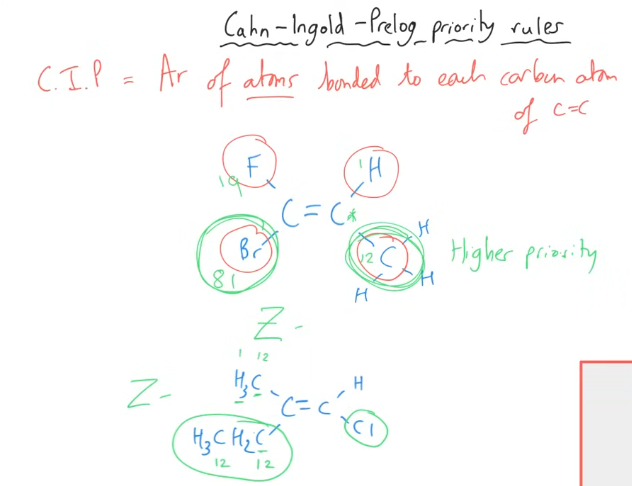 Cahn-Ingold-Prelog priority rules
C.I.P = Ar of atoms bonded to each carbon atom
of C=C
F
19
1 H
C=C*
1
Br
81
12 C
H
H
H
Higher priority
Z-
1 12
Z-
H3C
H
C=C
Cl
H3C H2C
12 12